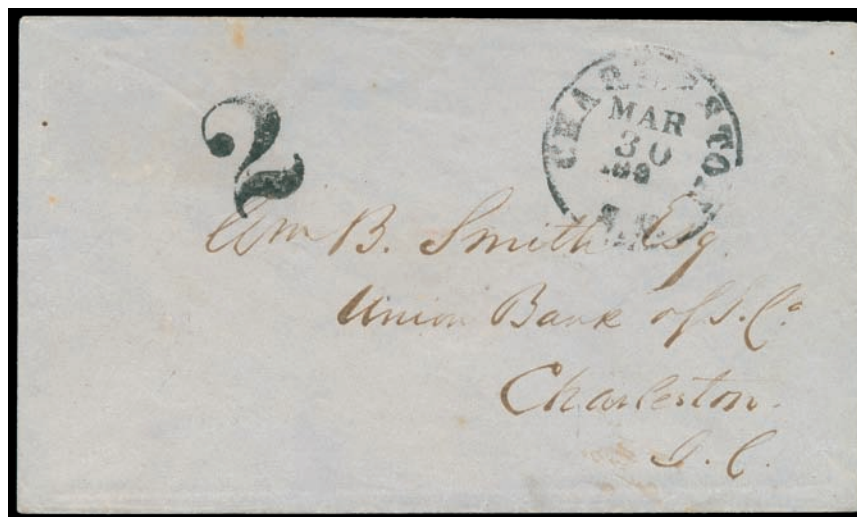 2
CHARLESTON
MAR
30
Wm B. Smith Esq.
Union Bank of S. Ca.
Charleston.
S. C.